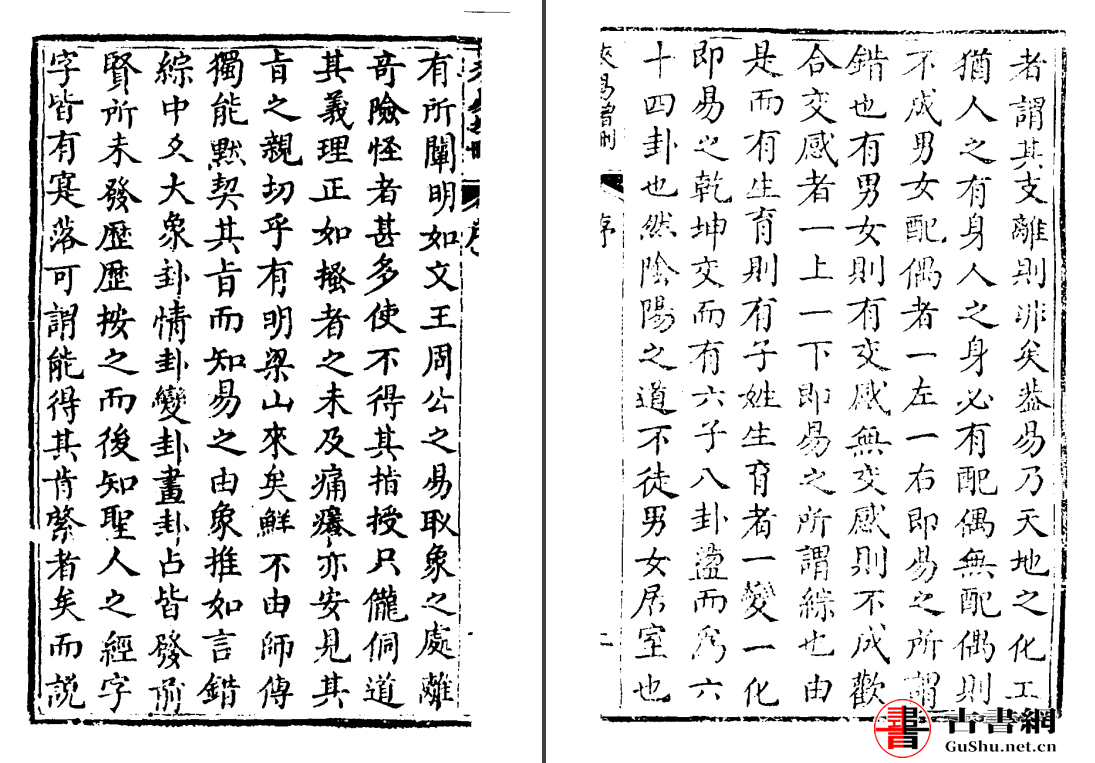 者謂其支離則非矣蓋易乃天地之化工
猶人之有身人之身必有配偶無配偶則
不成男女配偶者一左一右即易之所謂
錯也有男女則有交感無交感則不成歡
合交感者一上一下即易之所謂綜也由
是而有生育則有子姓生育者一變一化
即易之乾坤交而有六子八卦盪而為六
十四卦也然陰陽之道不徒男女居室也
來易增刪
序
二
有所闡明如文王周公之易取象之處離
奇險怪者甚多使不得其指授只儱侗道
其義理正如搔者之未及痛癢亦安見其
旨之親切乎有明梁山來矣鮮不由師傳
獨能默契其旨而知易之由象推如言錯
綜中爻大象卦情卦變卦畫卦占皆發前
賢所未發歷歷按之而後知聖人之經字
字皆有寔落可謂能得其肯綮者矣而説
書
古書網
GuShu.net.cn